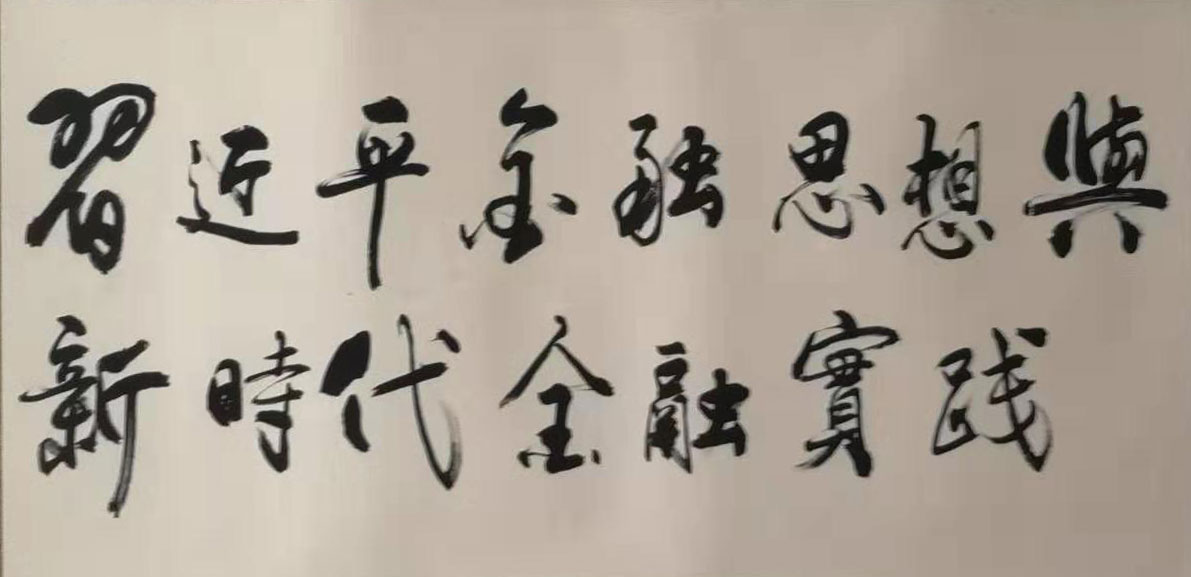 習近平金融思想與
新時代金融實践